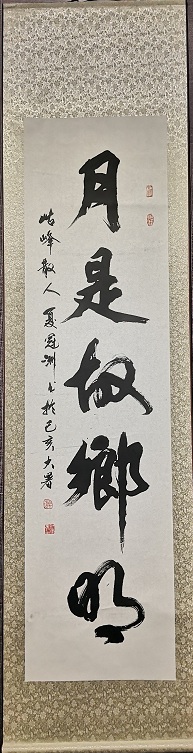 月是故鄉明
岵峰散人 夏冠洲 书於己亥大暑